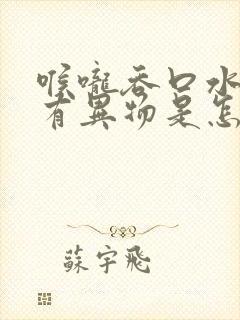 喉嚨吞口水
有異物是怎
蘇宇飛